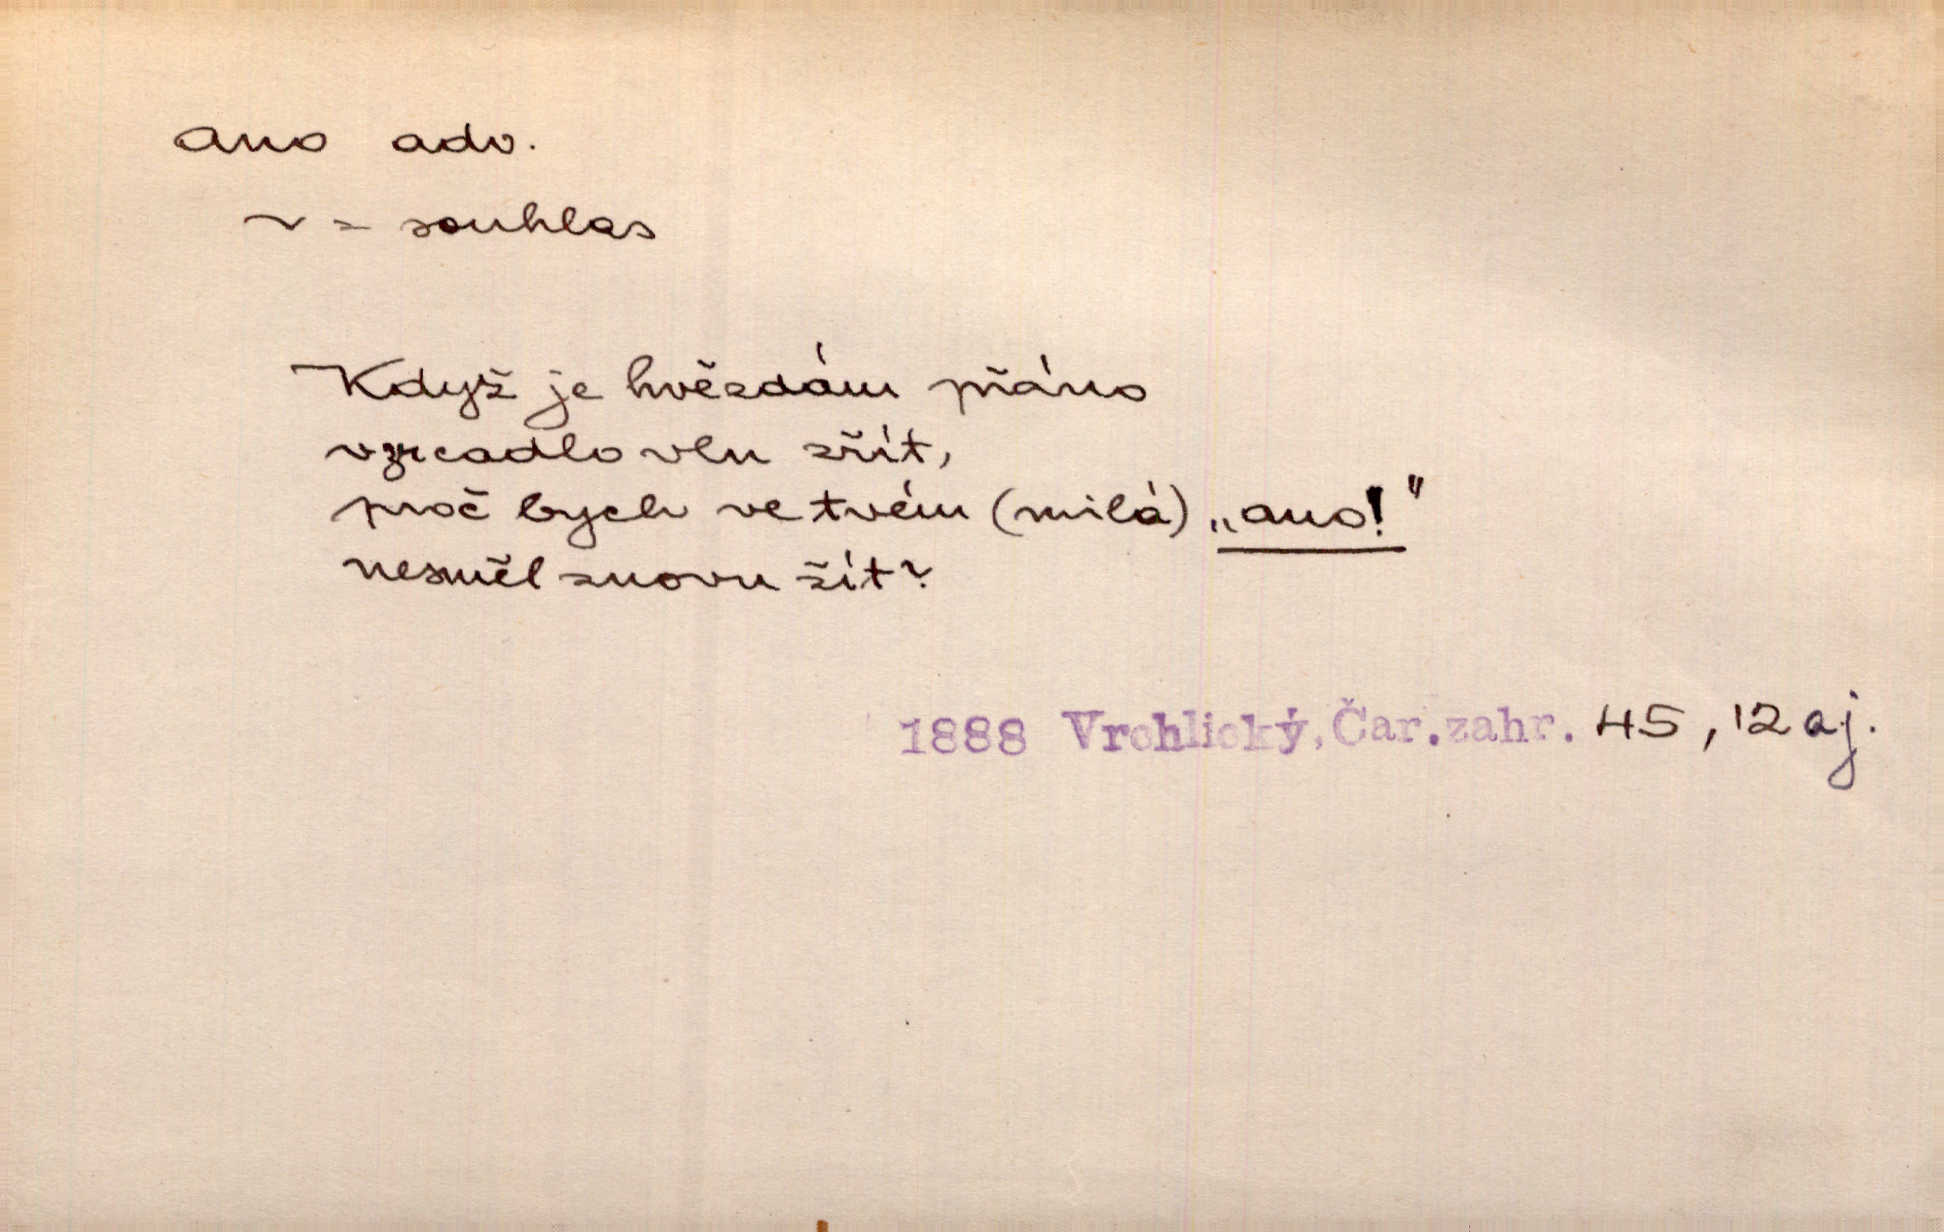 ano adv.
~ = souhlas
Když je hvězdám přáno
v zrcadlo vln zřít,
proč bych ve tvém (milá) „ano!"
nesměl znovu žít?
1888 Vrchlický, Čar. zahr. 45, 12 aj.